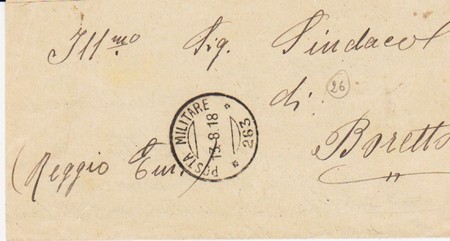 Ill mo Sig. Sindaco
di
26
Boretto
(Reggio Em.)
POSTA MILITARE
13.8.18
263